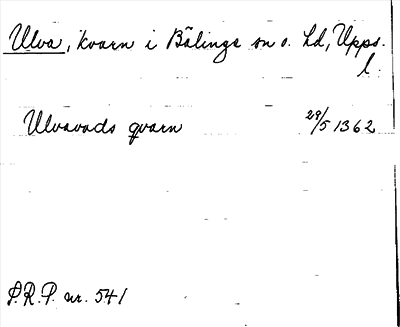 Ulva, kvarn i Bälinge sn o. hd, Upps.
l.
Ulvavads qvarn 29/5 1362
S.R.P. nr. 541